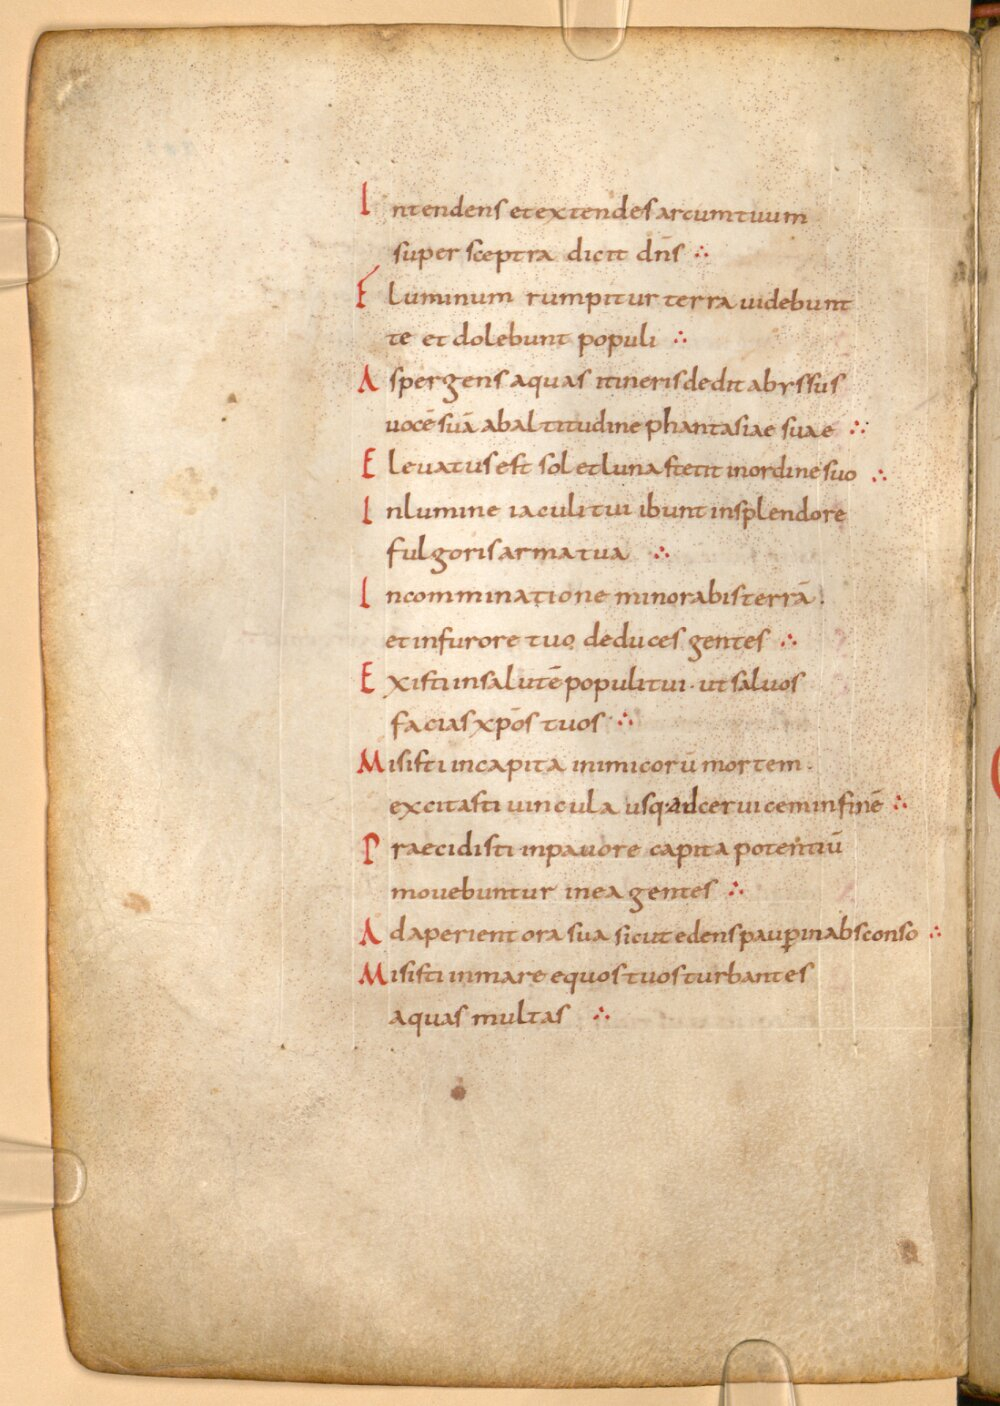 Intendens et extendes arcum tuum
super sceptra dicit dñs ∴
Fluminum rumpitur terra uidebunt
te et dolebunt populi ∴
Aspergens aquas itineris dedit abyssus
uocē suā ab altitudine phantasiae suae ∴
Eleuatus est sol et luna stetit in ordine suo ∴
In lumine iaculi tui ibunt in splendore
fulgoris arma tua ∴
In comminatione minorabis terrā.
et in furore tuo deduces gentes ∴
Existi in salutē populi tui · ut saluos
facias xp̄os tuos ∴
Misisti in capita inimicorū mortem ·
excitasti uincula usq· ad ceruicem in finē ∴
Praecidisti in pauore capita potentiū
mouebuntur in ea gentes ∴
Adaperient ora sua sicut edens paup̱ in absconso ∴
Misisti in mare equos tuos turbantes
aquas multas ∴